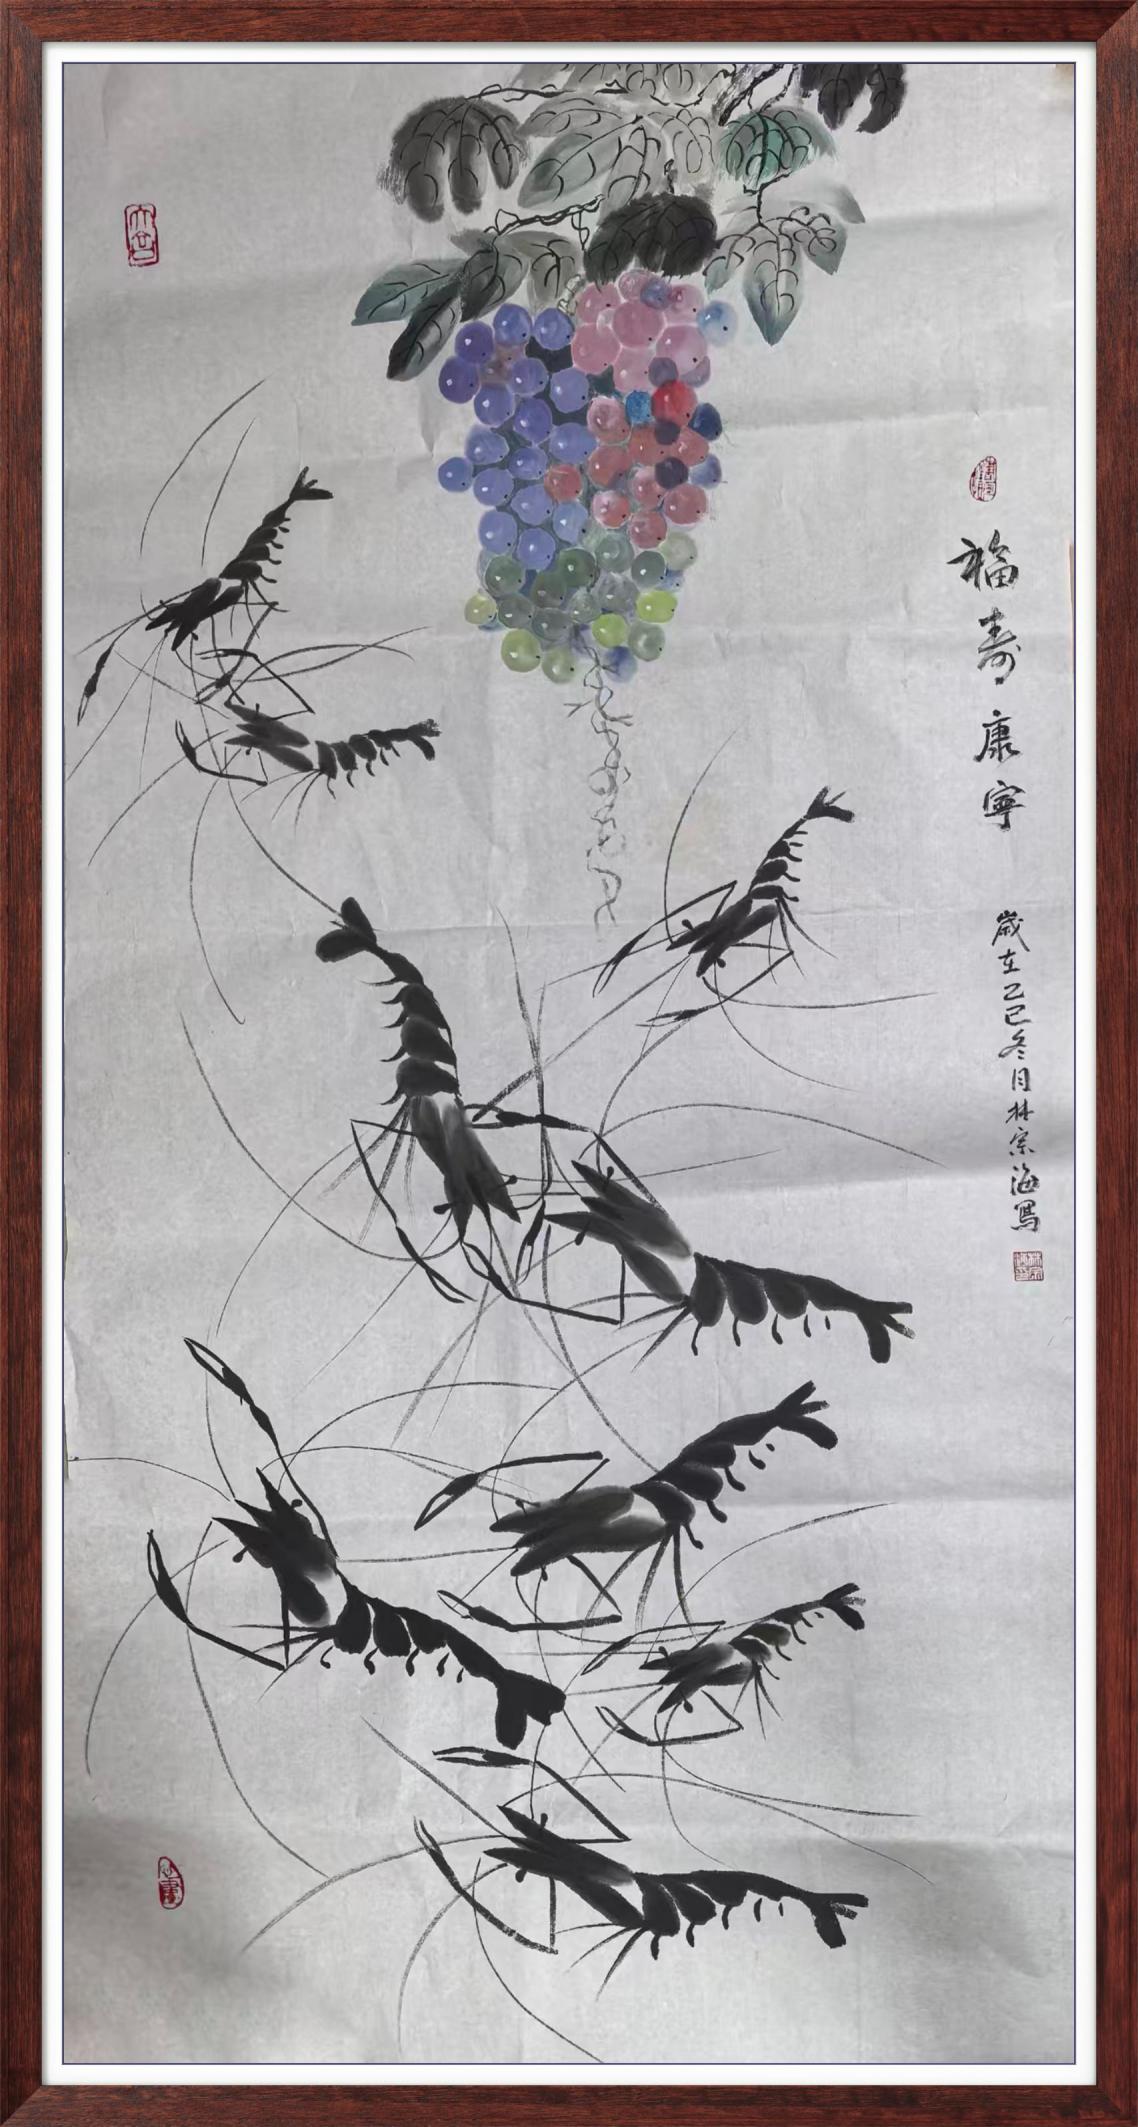 福寿康宁
歲在乙巳冬月林宗海寫